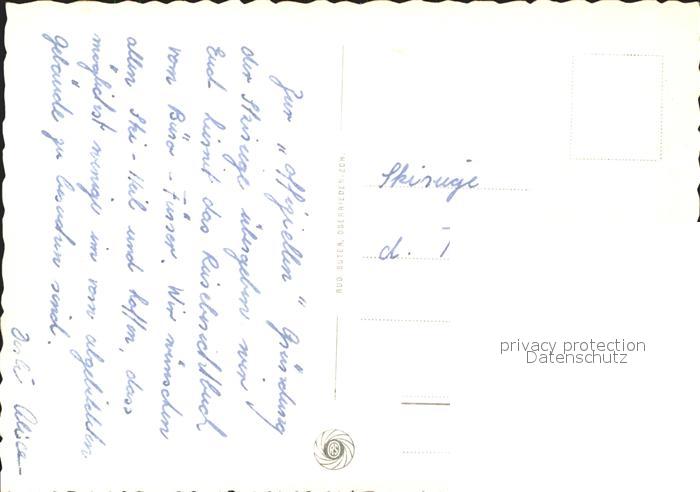 Zur „offiziellen“ Gründung
der Skiriege übergeben wir
Euch hiermit das Reiseberichtbuch
vom Büro-Füsser. Wir wünschen
allen Ski-Heil und hoffen, dass
möglichst wenige im vorn abgebildeten
Gebäude zu besuchen sind.
Alice
Skiriege
d. T
RUD. SUTER, OBERRIEDEN-ZCH.
privacy protection
Datenschutz